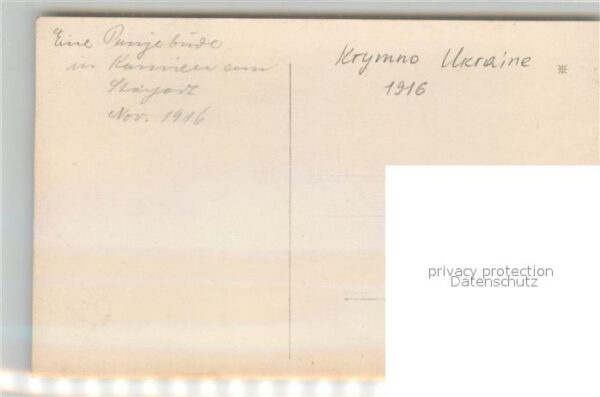 Eine Panjebude
in
Nov. 1916
Krymno Ukraine
1916
privacy protection
Datenschutz